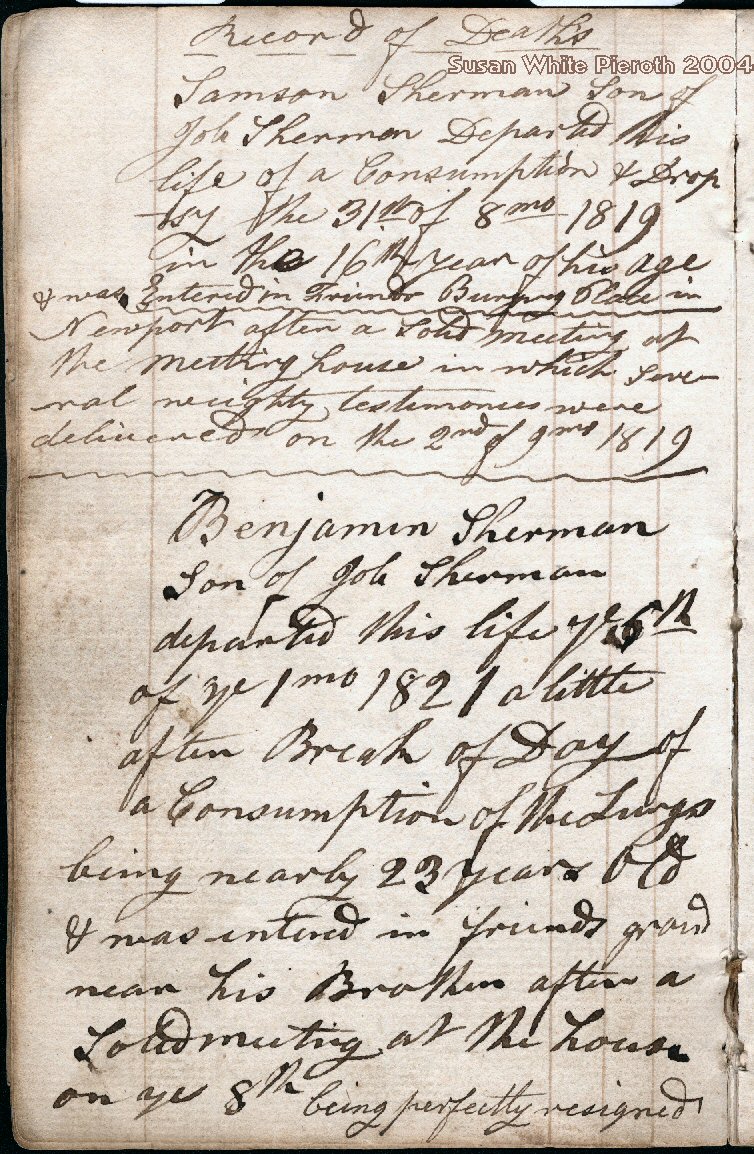 Record of Deaths
Susan White Pieroth 2004
Samson Sherman Son of
Job Sherman Departed this
life of a Consumption & Drop
-sy the 31st of 8mo 1819
in the 16th year of his age
& was Entered in Friends Burying Place in
Newport after a Solid meeting at
the meeting house in which Seve-
-ral weighty testimonies were
delivered on the 2nd of 9mo 1819
Benjamin Sherman
Son of Job Sherman
departed this life ye 6th
of ye 1mo 1821 a little
after Break of Day of
a Consumption of the Lungs
being nearly 23 years Old
& was entered in friends ground
near his Brother after a
Solid meeting at the house
on ye 8th being perfectly resigned